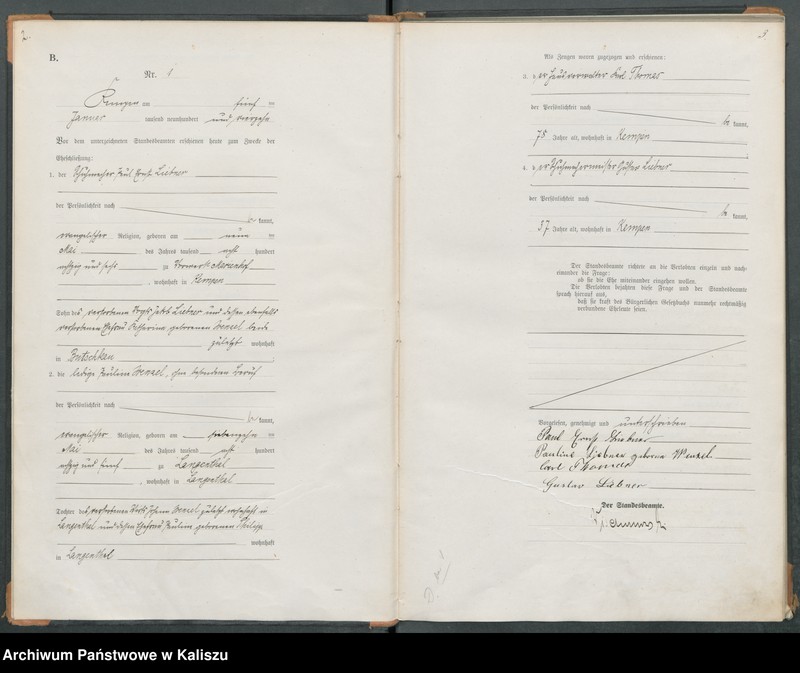 2.
B.
Nr. 1
Kempen am fünf ten
Januar tausend neunhundert und vierzehn
Vor dem unterzeichneten Standesbeamten erschienen heute zum Zwecke der
Eheschließung:
1. der Schuhmacher Paul Ernst Liebner
der Persönlichkeit nach
kannt,
evangelischer Religion, geboren am neun ten
Mai des Jahres tausend acht hundert
achtzig und sechs zu Vorwerk Marienhof
, wohnhaft in Kempen
Sohn des verstorbenen Jakob Liebner und dessen ebenfalls
verstorbenen Ehefrau Katharina geborenen Wenzel beide
zuletzt wohnhaft
in
2. die ledige Pauline Wenzel, ohne besonderen Beruf
der Persönlichkeit nach
be kannt,
evangelischer Religion, geboren am siebenzehn ten
Mai des Jahres tausend acht hundert
achtzig und fünf zu Langenthal
, wohnhaft in Langenthal
Tochter des verstorbenen Wirts Johann Wenzel zuletzt wohnhaft in
Langenthal und dessen Ehefrau Pauline geborenen Philipp
wohnhaft
in Langenthal
3.
Als Zeugen waren zugezogen und erschienen:
3. der Hausverwalter Karl Thomas
der Persönlichkeit nach
be kannt,
75 Jahre alt, wohnhaft in Kempen
4. der Schuhmachermeister Gustav Liebner
der Persönlichkeit nach
be kannt,
37 Jahre alt, wohnhaft in Kempen
Der Standesbeamte richtete an die Verlobten einzeln und nach-
einander die Frage:
ob sie die Ehe miteinander eingehen wollen.
Die Verlobten bejahten diese Frage und der Standesbeamte
sprach hierauf aus,
daß sie kraft des Bürgerlichen Gesetzbuchs nunmehr rechtmäßig
verbundene Eheleute seien.
Vorgelesen, genehmigt und unterschrieben
Paul Ernst Liebner
Pauline Liebner geborene Wenzel
Carl Thomas
Gustav Liebner
Der Standesbeamte.
Archiwum Państwowe w Kaliszu